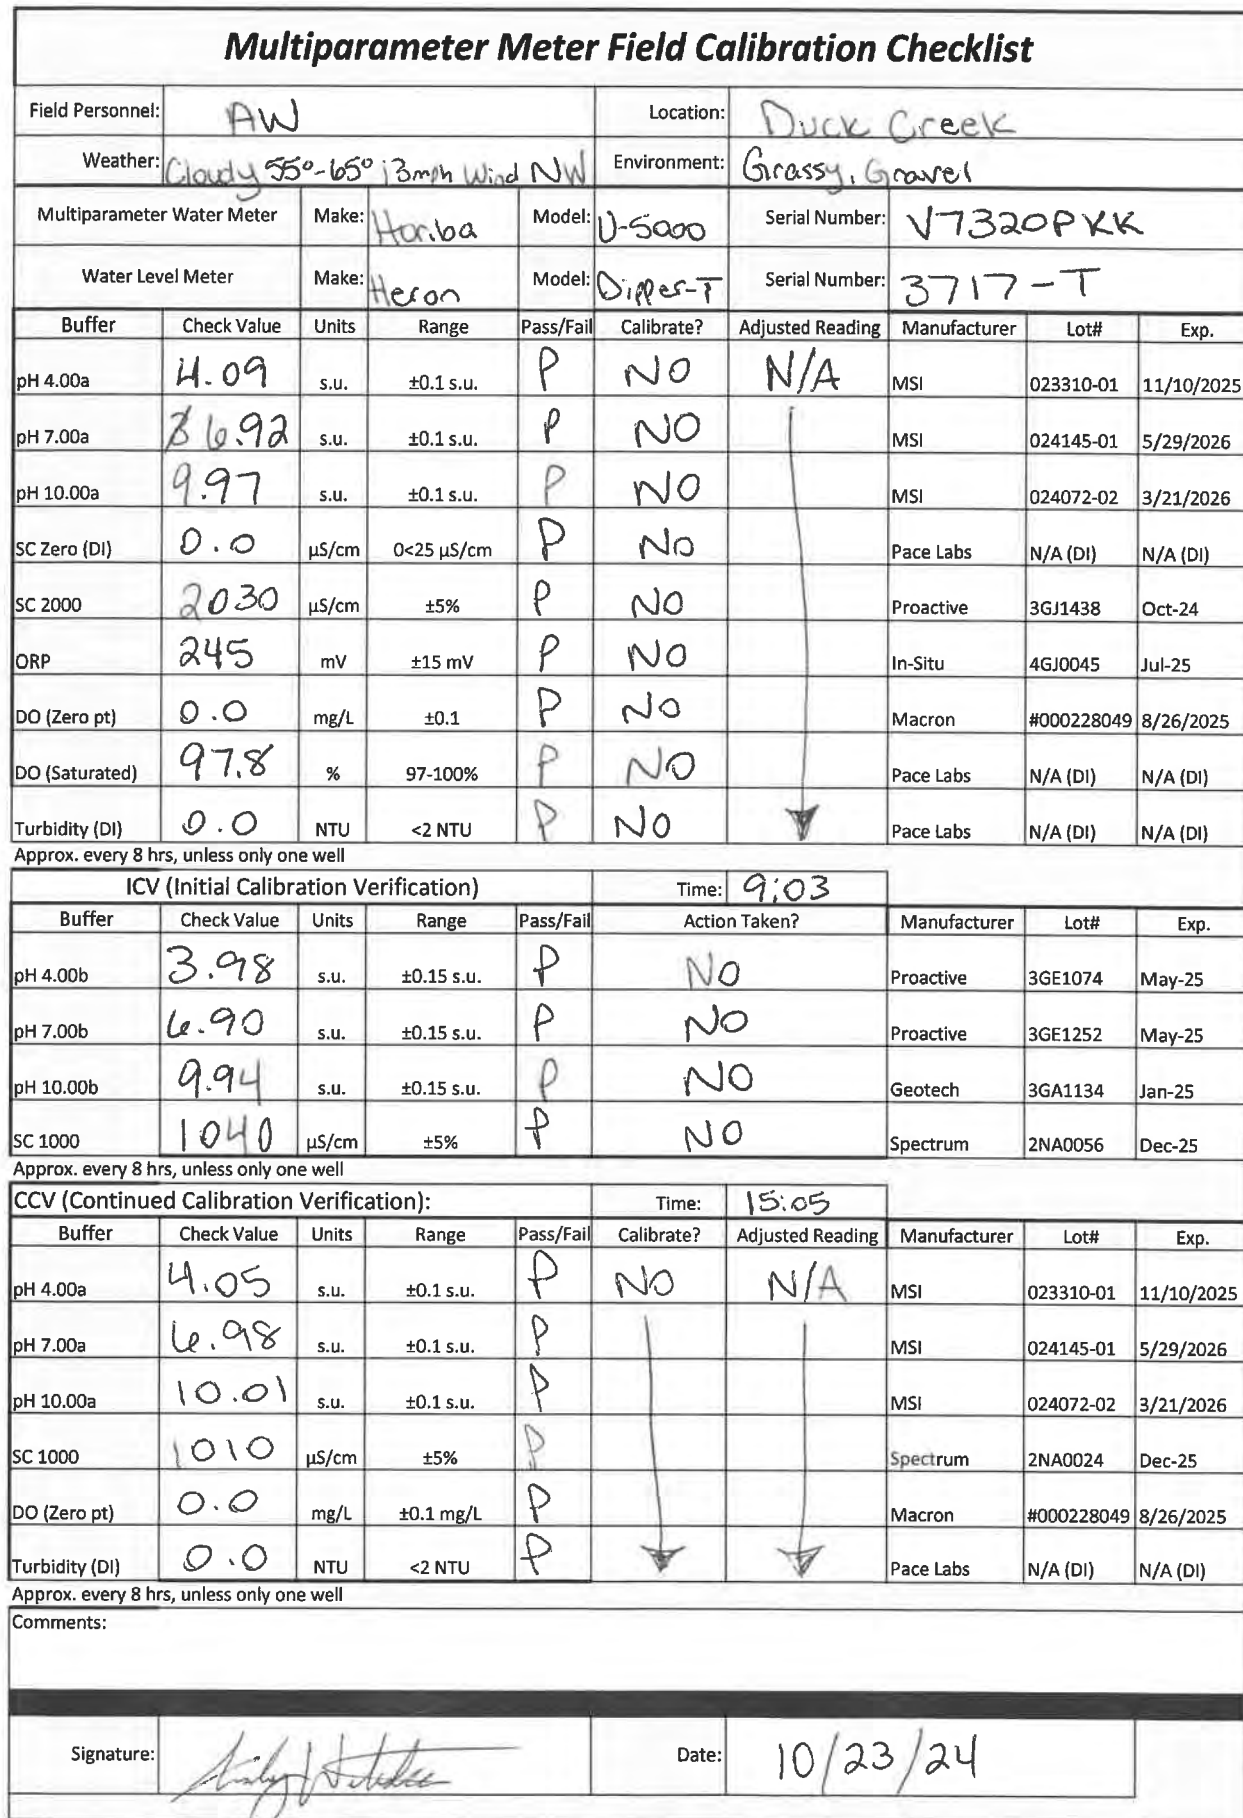 Multiparameter Meter Field Calibration Checklist
Field Personnel: AW Location: Duck Creek
Weather: Cloudy 55°-65° 13mph Wind NW Environment: Grassy, Gravel
Multiparameter Water Meter Make: Horiba Model: U-5000 Serial Number: V7320PKK
Water Level Meter Make: Heron Model: Dipper-T Serial Number: 3717-T
Buffer Check Value Units Range Pass/Fail Calibrate? Adjusted Reading Manufacturer Lot# Exp.
pH 4.00a 4.09 s.u. ±0.1 s.u. P NO N/A MSI 023310-01 11/10/2025
pH 7.00a 6.92 s.u. ±0.1 s.u. P NO MSI 024145-01 5/29/2026
pH 10.00a 9.97 s.u. ±0.1 s.u. P NO MSI 024072-02 3/21/2026
SC Zero (DI) 0.0 µS/cm 0<25 µS/cm P No Pace Labs N/A (DI) N/A (DI)
SC 2000 2030 µS/cm ±5% P NO Proactive 3GJ1438 Oct-24
ORP 245 mV ±15 mV P NO In-Situ 4GJ0045 Jul-25
DO (Zero pt) 0.0 mg/L ±0.1 P NO Macron #000228049 8/26/2025
DO (Saturated) 97.8 % 97-100% P NO Pace Labs N/A (DI) N/A (DI)
Turbidity (DI) 0.0 NTU <2 NTU P NO Pace Labs N/A (DI) N/A (DI)
Approx. every 8 hrs, unless only one well
ICV (Initial Calibration Verification) Time: 9:03
Buffer Check Value Units Range Pass/Fail Action Taken? Manufacturer Lot# Exp.
pH 4.00b 3.98 s.u. ±0.15 s.u. P NO Proactive 3GE1074 May-25
pH 7.00b 6.90 s.u. ±0.15 s.u. P NO Proactive 3GE1252 May-25
pH 10.00b 9.94 s.u. ±0.15 s.u. P NO Geotech 3GA1134 Jan-25
SC 1000 1040 µS/cm ±5% P NO Spectrum 2NA0056 Dec-25
Approx. every 8 hrs, unless only one well
CCV (Continued Calibration Verification): Time: 15:05
Buffer Check Value Units Range Pass/Fail Calibrate? Adjusted Reading Manufacturer Lot# Exp.
pH 4.00a 4.05 s.u. ±0.1 s.u. P NO N/A MSI 023310-01 11/10/2025
pH 7.00a 6.98 s.u. ±0.1 s.u. P MSI 024145-01 5/29/2026
pH 10.00a 10.01 s.u. ±0.1 s.u. P MSI 024072-02 3/21/2026
SC 1000 1010 µS/cm ±5% P Spectrum 2NA0024 Dec-25
DO (Zero pt) 0.0 mg/L ±0.1 mg/L P Macron #000228049 8/26/2025
Turbidity (DI) 0.0 NTU <2 NTU P Pace Labs N/A (DI) N/A (DI)
Approx. every 8 hrs, unless only one well
Comments:
Signature: Date: 10/23/24